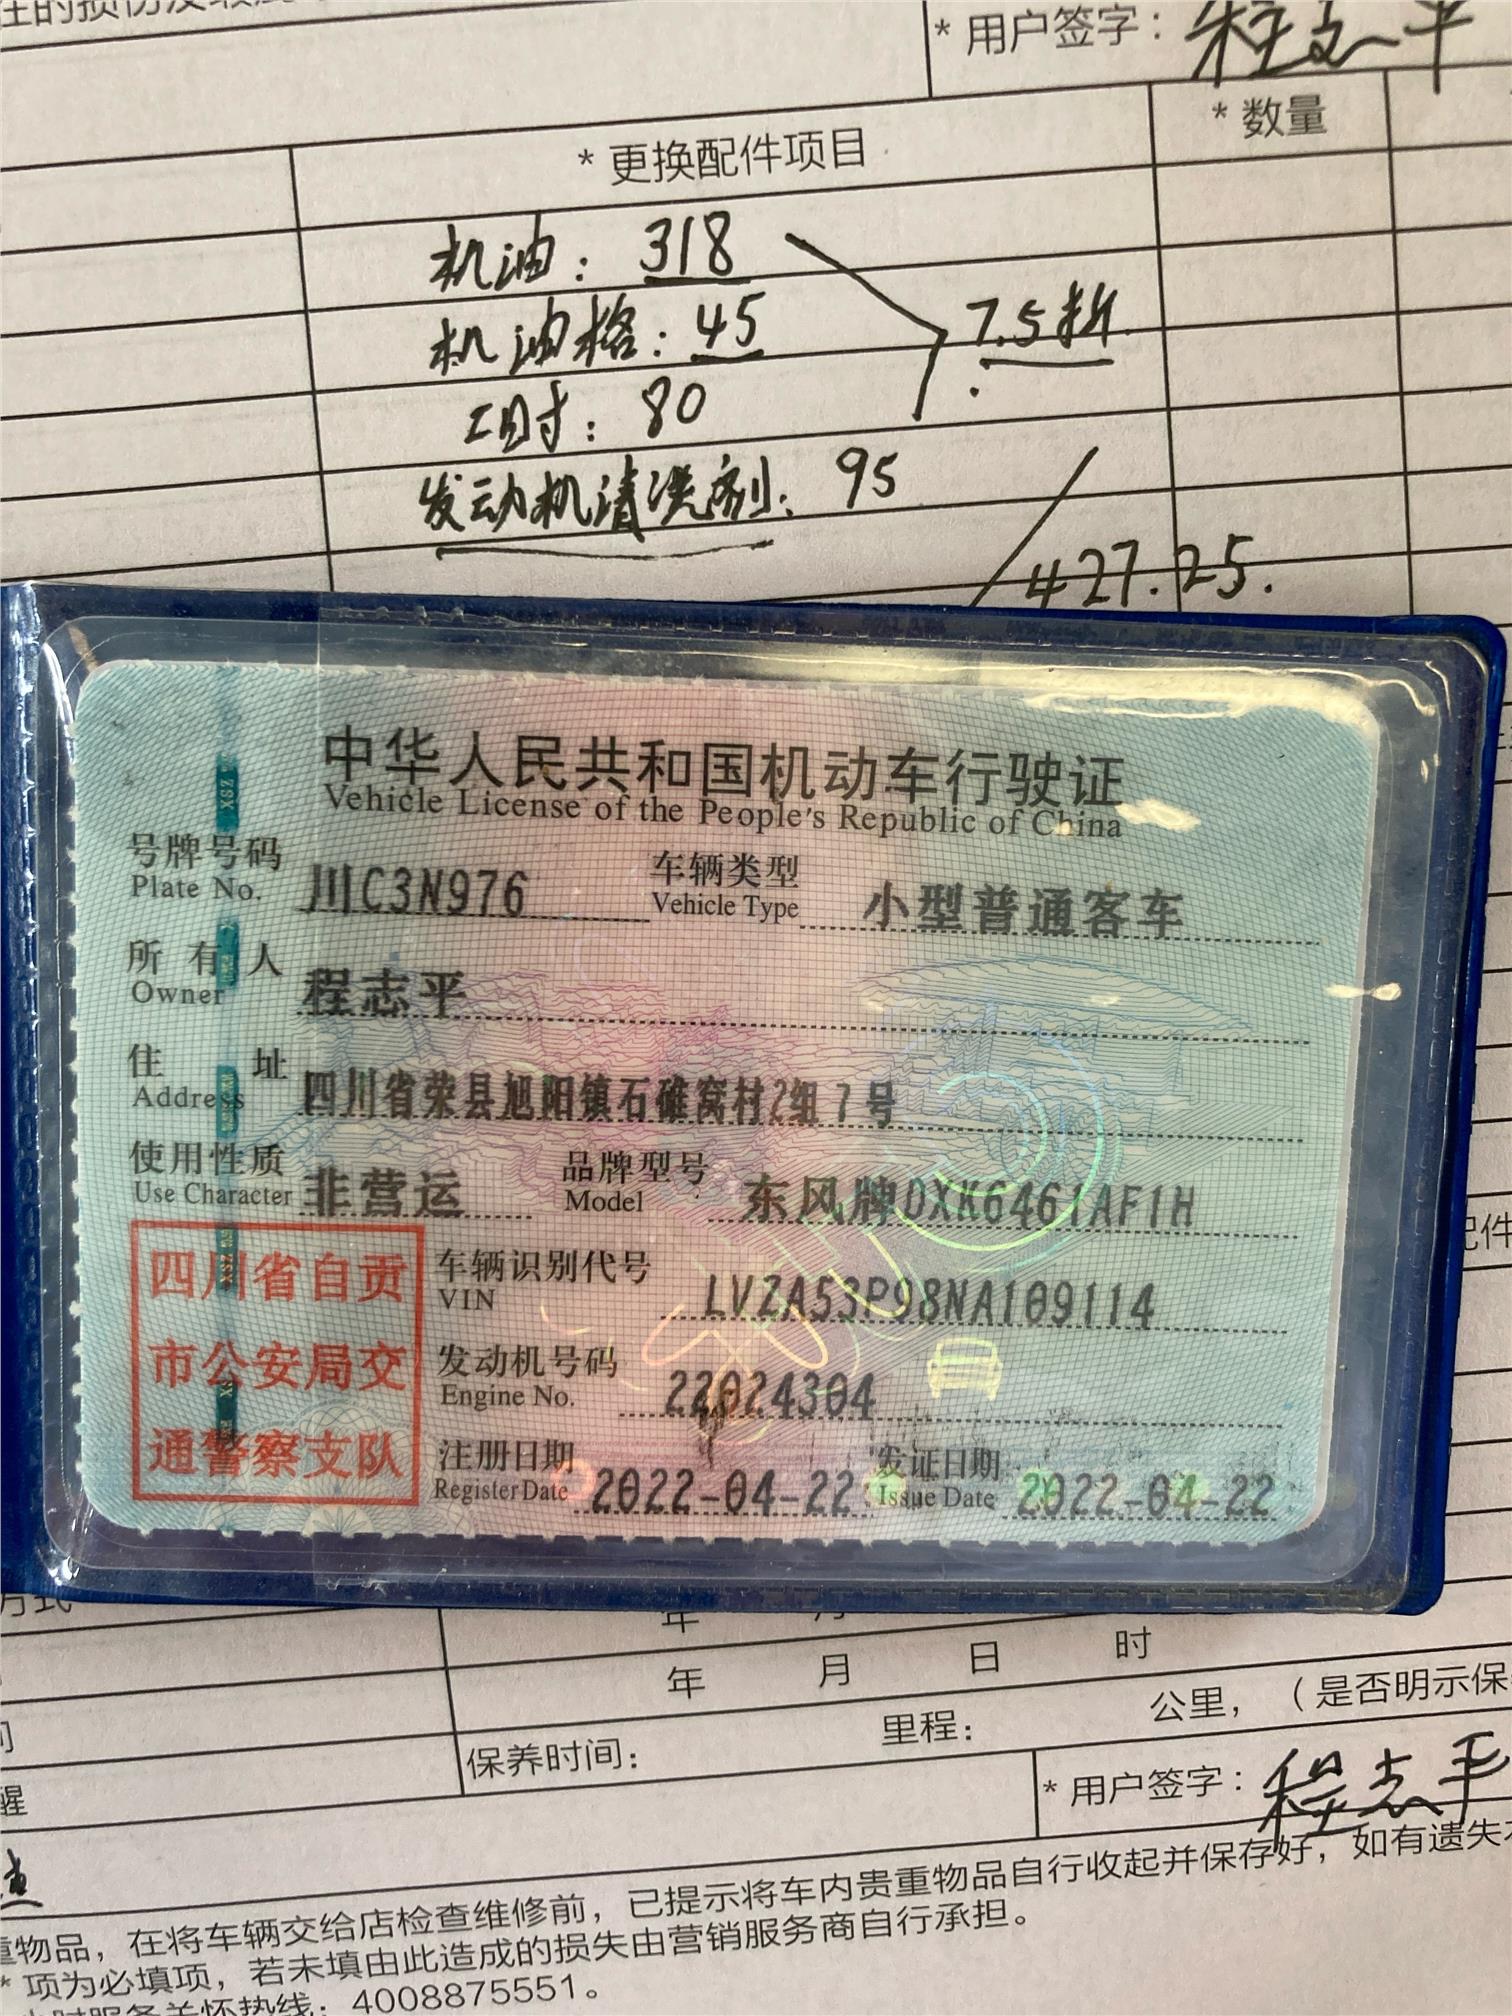 * 用户签字： 程志平
* 更换配件项目 * 数量
机油： 318
机油格： 45 7.5折
工时： 80
发动机清洗剂： 95
427.25.
中华人民共和国机动车行驶证
Vehicle License of the People's Republic of China
号牌号码 川C3N976 车辆类型 小型普通客车
Plate No. Vehicle Type
所有人 程志平
Owner
住址 四川省荣县旭阳镇石碓窝村2组7号
Address
使用性质 非营运 品牌型号 东风牌DXK6461AF1H
Use Character Model
四川省自贡
市公安局交
通警察支队
车辆识别代号 LVZA53P98NA109114
VIN
发动机号码 22024304
Engine No.
注册日期 2022-04-22 发证日期 2022-04-22
Register Date Issue Date
方式
年 月
年 月 日 时
保养时间： 里程： 公里，（是否明示保
* 用户签字： 程志平
重物品，在将车辆交给店检查维修前，已提示将车内贵重物品自行收起并保存好，如有遗失
* 项为必填项，若未填由此造成的损失由营销服务商自行承担。
小时服务关怀热线：4008875551。